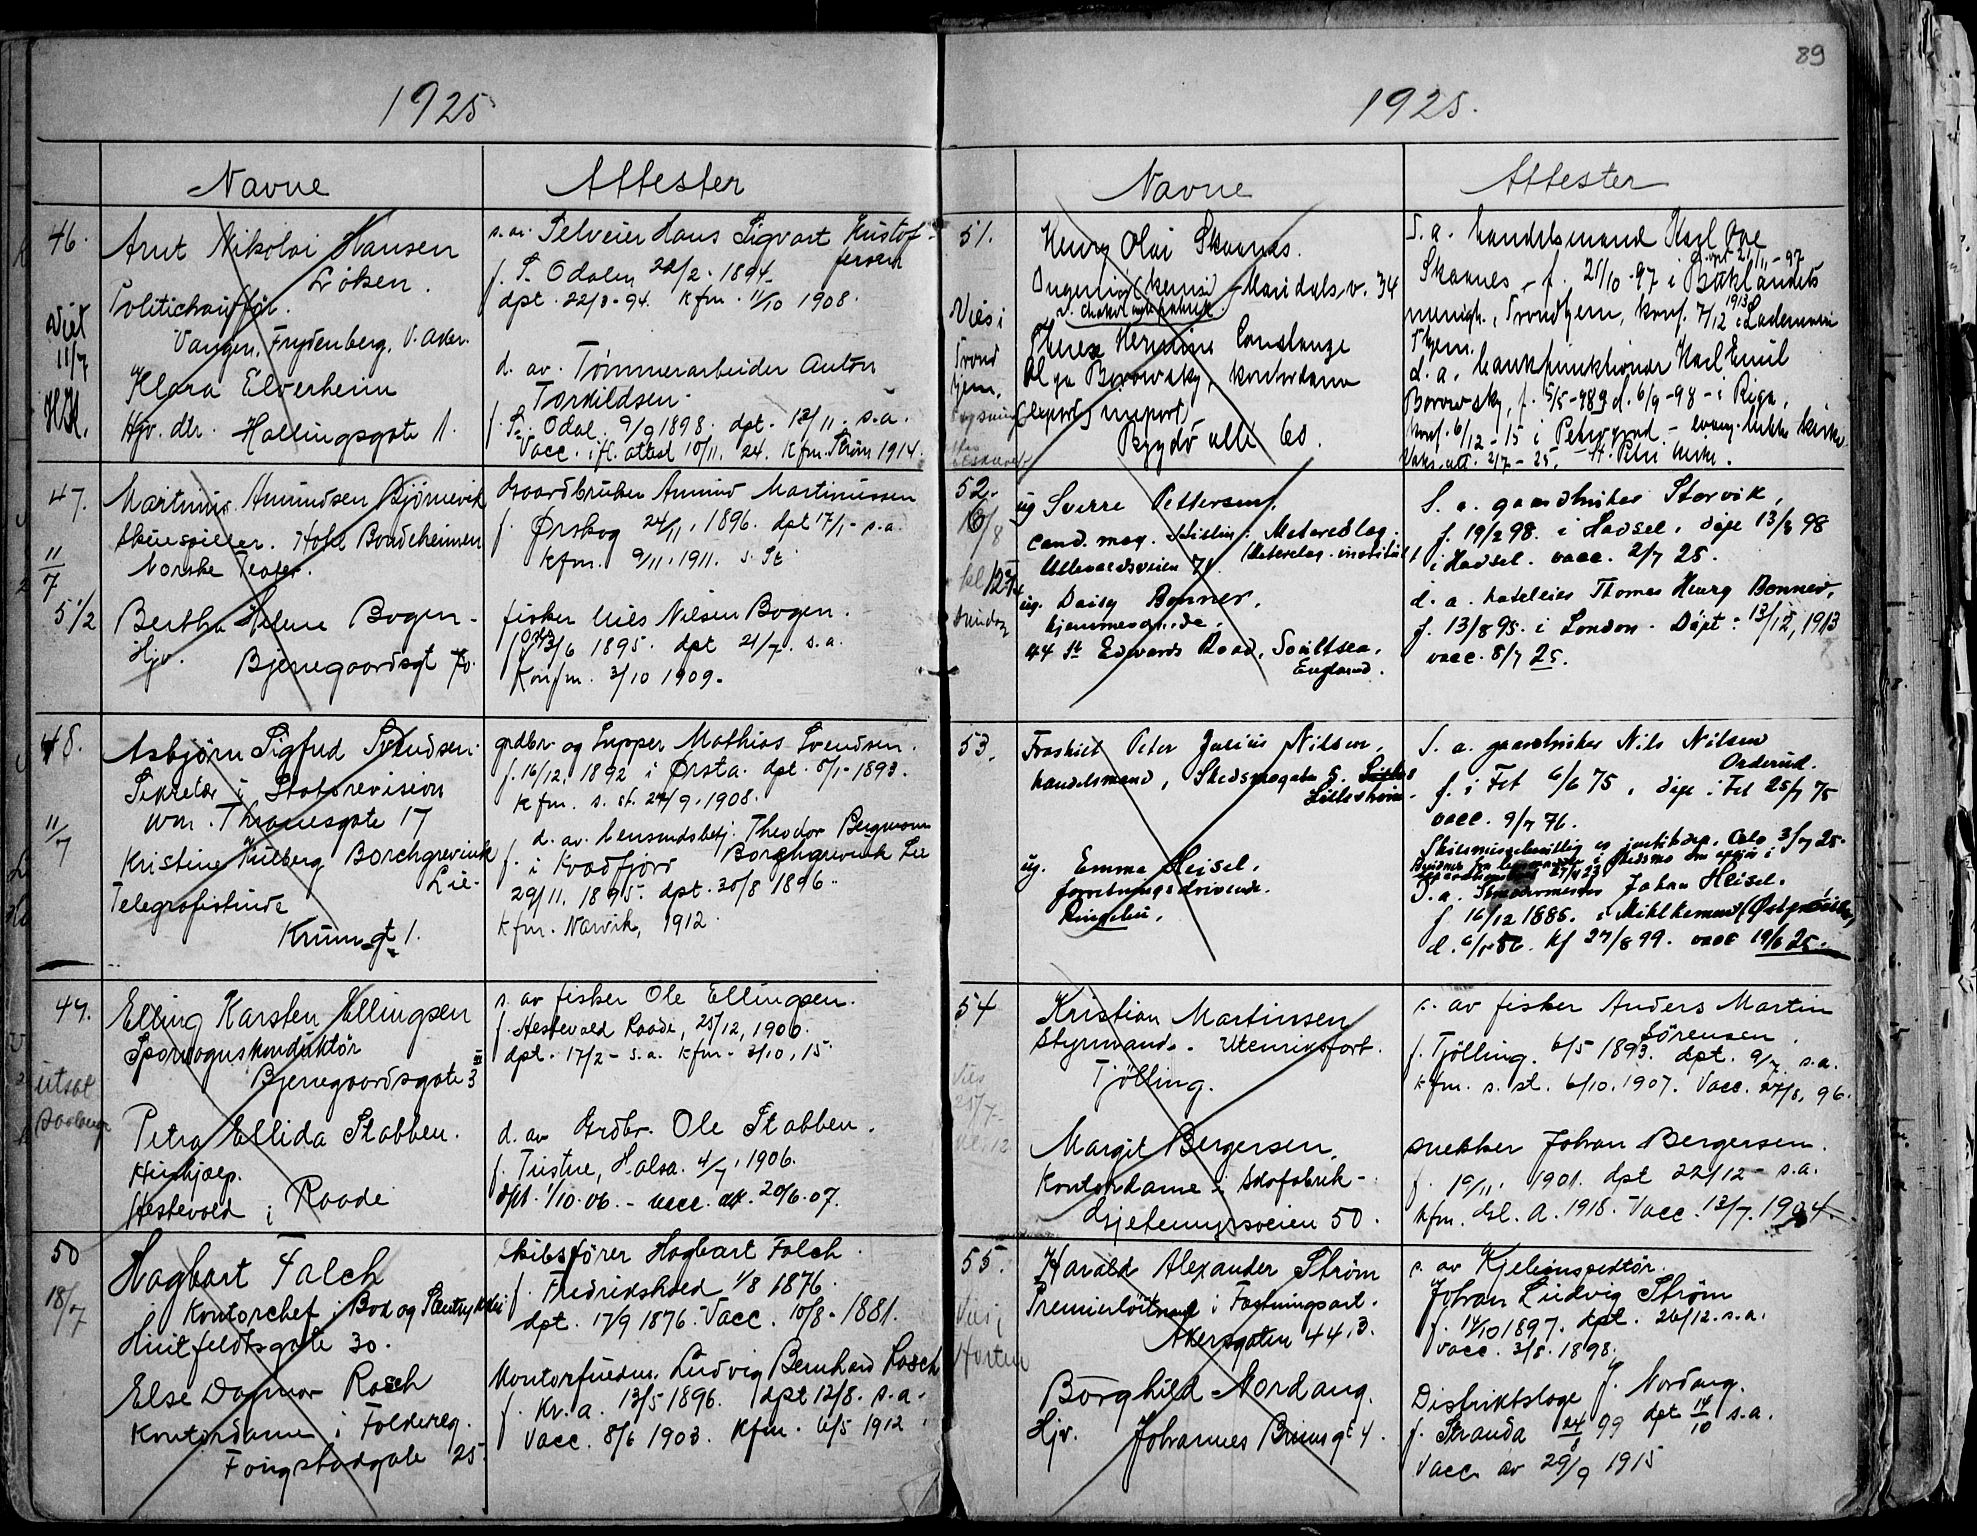 89
1925
Navne Attester
46.
Viet
11/7
Arnt Nikolai Hansen
Løken.
Politichauffør.
Vangen, Frydenberg, V. Aker.
Klara Elverheim
Hjv. dtr. Hallingsgate 1.
s. av. Selveier Hans Sigvart Kristof-
fersen
f. S. Odalen 22/2 - 1894.
dpt. 22/3 - 94. Kfm. 1/10 1908.
d. av. Tømmerarbeider Anton
Torkildsen.
f. S. Odal. 9/9 1898. dpt. 13/11. s.a.
Vacc. ifl. attest 10/11. 24. Kfm. Strøm 1914.
47.
11/7
5 1/2
Martinus Amundsen Bjørnevik
Skuespiller. Hotel Bondeheimen
Norske Teater.
Bertha Helene Bogen.
Hjv. Bjerregaardsgt 70.
Gaardbruker Amund Martinussen
f. Ørskog 24/11, 1896. dpt 17/1 - s.a.
kfm. 9/11. 1911. s. St.
fisker Nils Nilsen Bogen.
13/6 1895. dpt 21/7. s.a.
Konfm. 3/10 1909.
48.
11/7
Asbjørn Sigfud Svendsen.
Sekretær i Statsrevision
Wm. Thranesgate 17
Kristine Hilberg Borchgrevink
Lie.
Telegrafistinde
Krumgt 1.
grdbr. og Mathias Svendsen.
f. 16/12, 1892 i Ørsta. dpt. 8/1 - 1893.
kfm. s. st. 24/9 - 1908.
d. av. Lensmdsbetj. Theodor Bergmann
Borchgrevink Lie
f. i Kvadfjord
29/11. 1895. dpt. 30/8 1896.
kfm. Narvik, 1912.
49.
utsat
Elling Karsten Ellingsen
Sporvognskonduktør
Bjerregaardsgate 3 III
Petra Ellida Stabben.
Hushjælp.
Hestevold i Raade
s. av fisker Ole Ellingsen.
f. Hestevold Raade, 25/12, 1900.
dpt. 17/2 - s.a. kfm. 3/10, 15.
d. av Grdbr. Ole Stabben.
f. Tustne, Halsa. 4/7, 1906.
dpt. 1/10. 06. - vacc. att. 20/6. 07.
50
18/7
Hagbart Falch
Kontorchef i Bok og
Huitfeldtsgate 30.
Else Dagmar Rasch
Kontordame i Folkereg.
Fougstadgate 25.
Skibsfører Hagbart Falch.
f. Fredrikshald 1/8 1876.
dpt. 17/9 1876. Vacc. 10/8 - 1881.
Kontorfuldm. Ludvig Bernhard Rasch
f. Kr.a. 13/5 1896. dpt 12/8. s.a.
Vacc. 8/6 1903. Kfm. 6/5 1912.
1925.
Navne Attester
51.
Vies i
Trond
hjem.
Henry Olai Skaanes.
Ingeniør (kemisk) Maridals v. 34
v. chokoladefabrik.
Therese Hermine Constanze
Olga Borowsky, kontordame
(export, import)
Bygdø allé 60.
S. a. handelsmand Karl Ove
Skaanes, f. 21/10 - 97 i Baklandets
menigh., Trondhjem, konf. 7/12 1913 i Lademoen
Thjem.
d. a. bankfunktionær Karl Emil
Borowsky, f. 5/5 - 98 d. 6/9 - 98 - i Riga,
konf. 6/12 - 15 i Petrograd - evang. luth. kirke
Vaks. att. 2/7 - 25. St. Petri kirke.
52.
16/8
ug Sverre Pettersen,
cand. mag. Stilling: Meteorolog.
Ullevaalsveien 71
ug. Daisy Bonner,
hjemmeværende.
44 St Edwards Road, Southsea,
England.
S. a. gaardbruker Storvik,
f. 19/2 98. i Hadsel, døpt 13/3 98
i Hadsel. vacc. 2/7 25.
d. a. hoteleier Thomas Henry Bonner,
f. 13/8 95. i London. Døpt: 13/12, 1913
vacc. 8/7 25.
53.
Fraskilt Peter Julius Nilsen,
handelsmand, Skedsmogate 5.
Lillestrøm.
ug. Emma Heisel,
forretningsdrivende.
Ringebu.
S. a. gaardbruker Nils Nilsen
Orderud.
f. i Fet 6/6 75, døpt i Fet 25/7 75
vacc. 9/7 76.
Skilsmissebevilling av justitsdep. Oslo 3/7 25.
D. a. Johan Heisel.
f 16/12 1885. i
Kf 27/8 99. vacc 19/6 25.
54
Vies
25/7 -
kl. 12
Kristian Martinsen
Styrmand. Utenriksfart.
Tjølling.
Margit Bergersen,
Kontordame i skofabrik -
Gjetemyrsveien 50.
s. av fisker Anders Martin
Sørensen.
f. Tjølling. 6/5 1893. dpt. 9/7 s.a.
kfm. s. st. 6/10. 1907. Vacc. 27/8, 96.
snekker Johan Bergersen.
f. 19/11, 1901. dpt 22/12 - s.a.
kfm. Gl. A. 1916. Vacc. 13/7. 1904.
55.
Vies i
Horten
Harald Alexander Strøm
Premierløitnant i Fæstningsart.
Akersgaten 44, 3.
Borghild Nordang.
Hjv. Johannes Brunsgt 4.
s. av Kjelinspektør.
Johan Ludvig Strøm
f. 14/10 1897. dpt. 26/12. s.a.
Vacc. 3/8. 1898.
Distriktslæge J. Nordang.
f. Stranda 24/8 99 dpt 14/10 s.a.
Vacc av 29/9 1915